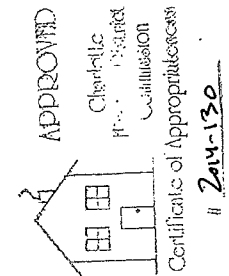 APPROVED
Charlotte
District
Commission
Certificate of Appropriateness
# 2014-130